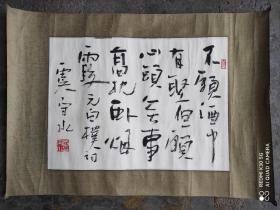 不願酒中
有聖但願
心頭無事
高枕臥烟
霞元白樸詞
虞守水
REDMI K30 5G
AI QUAD CAMERA